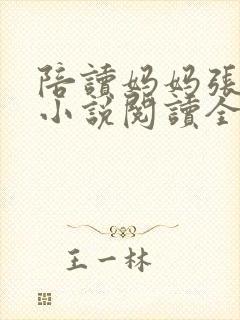 陪讀媽媽張
小說閱讀全
王一林